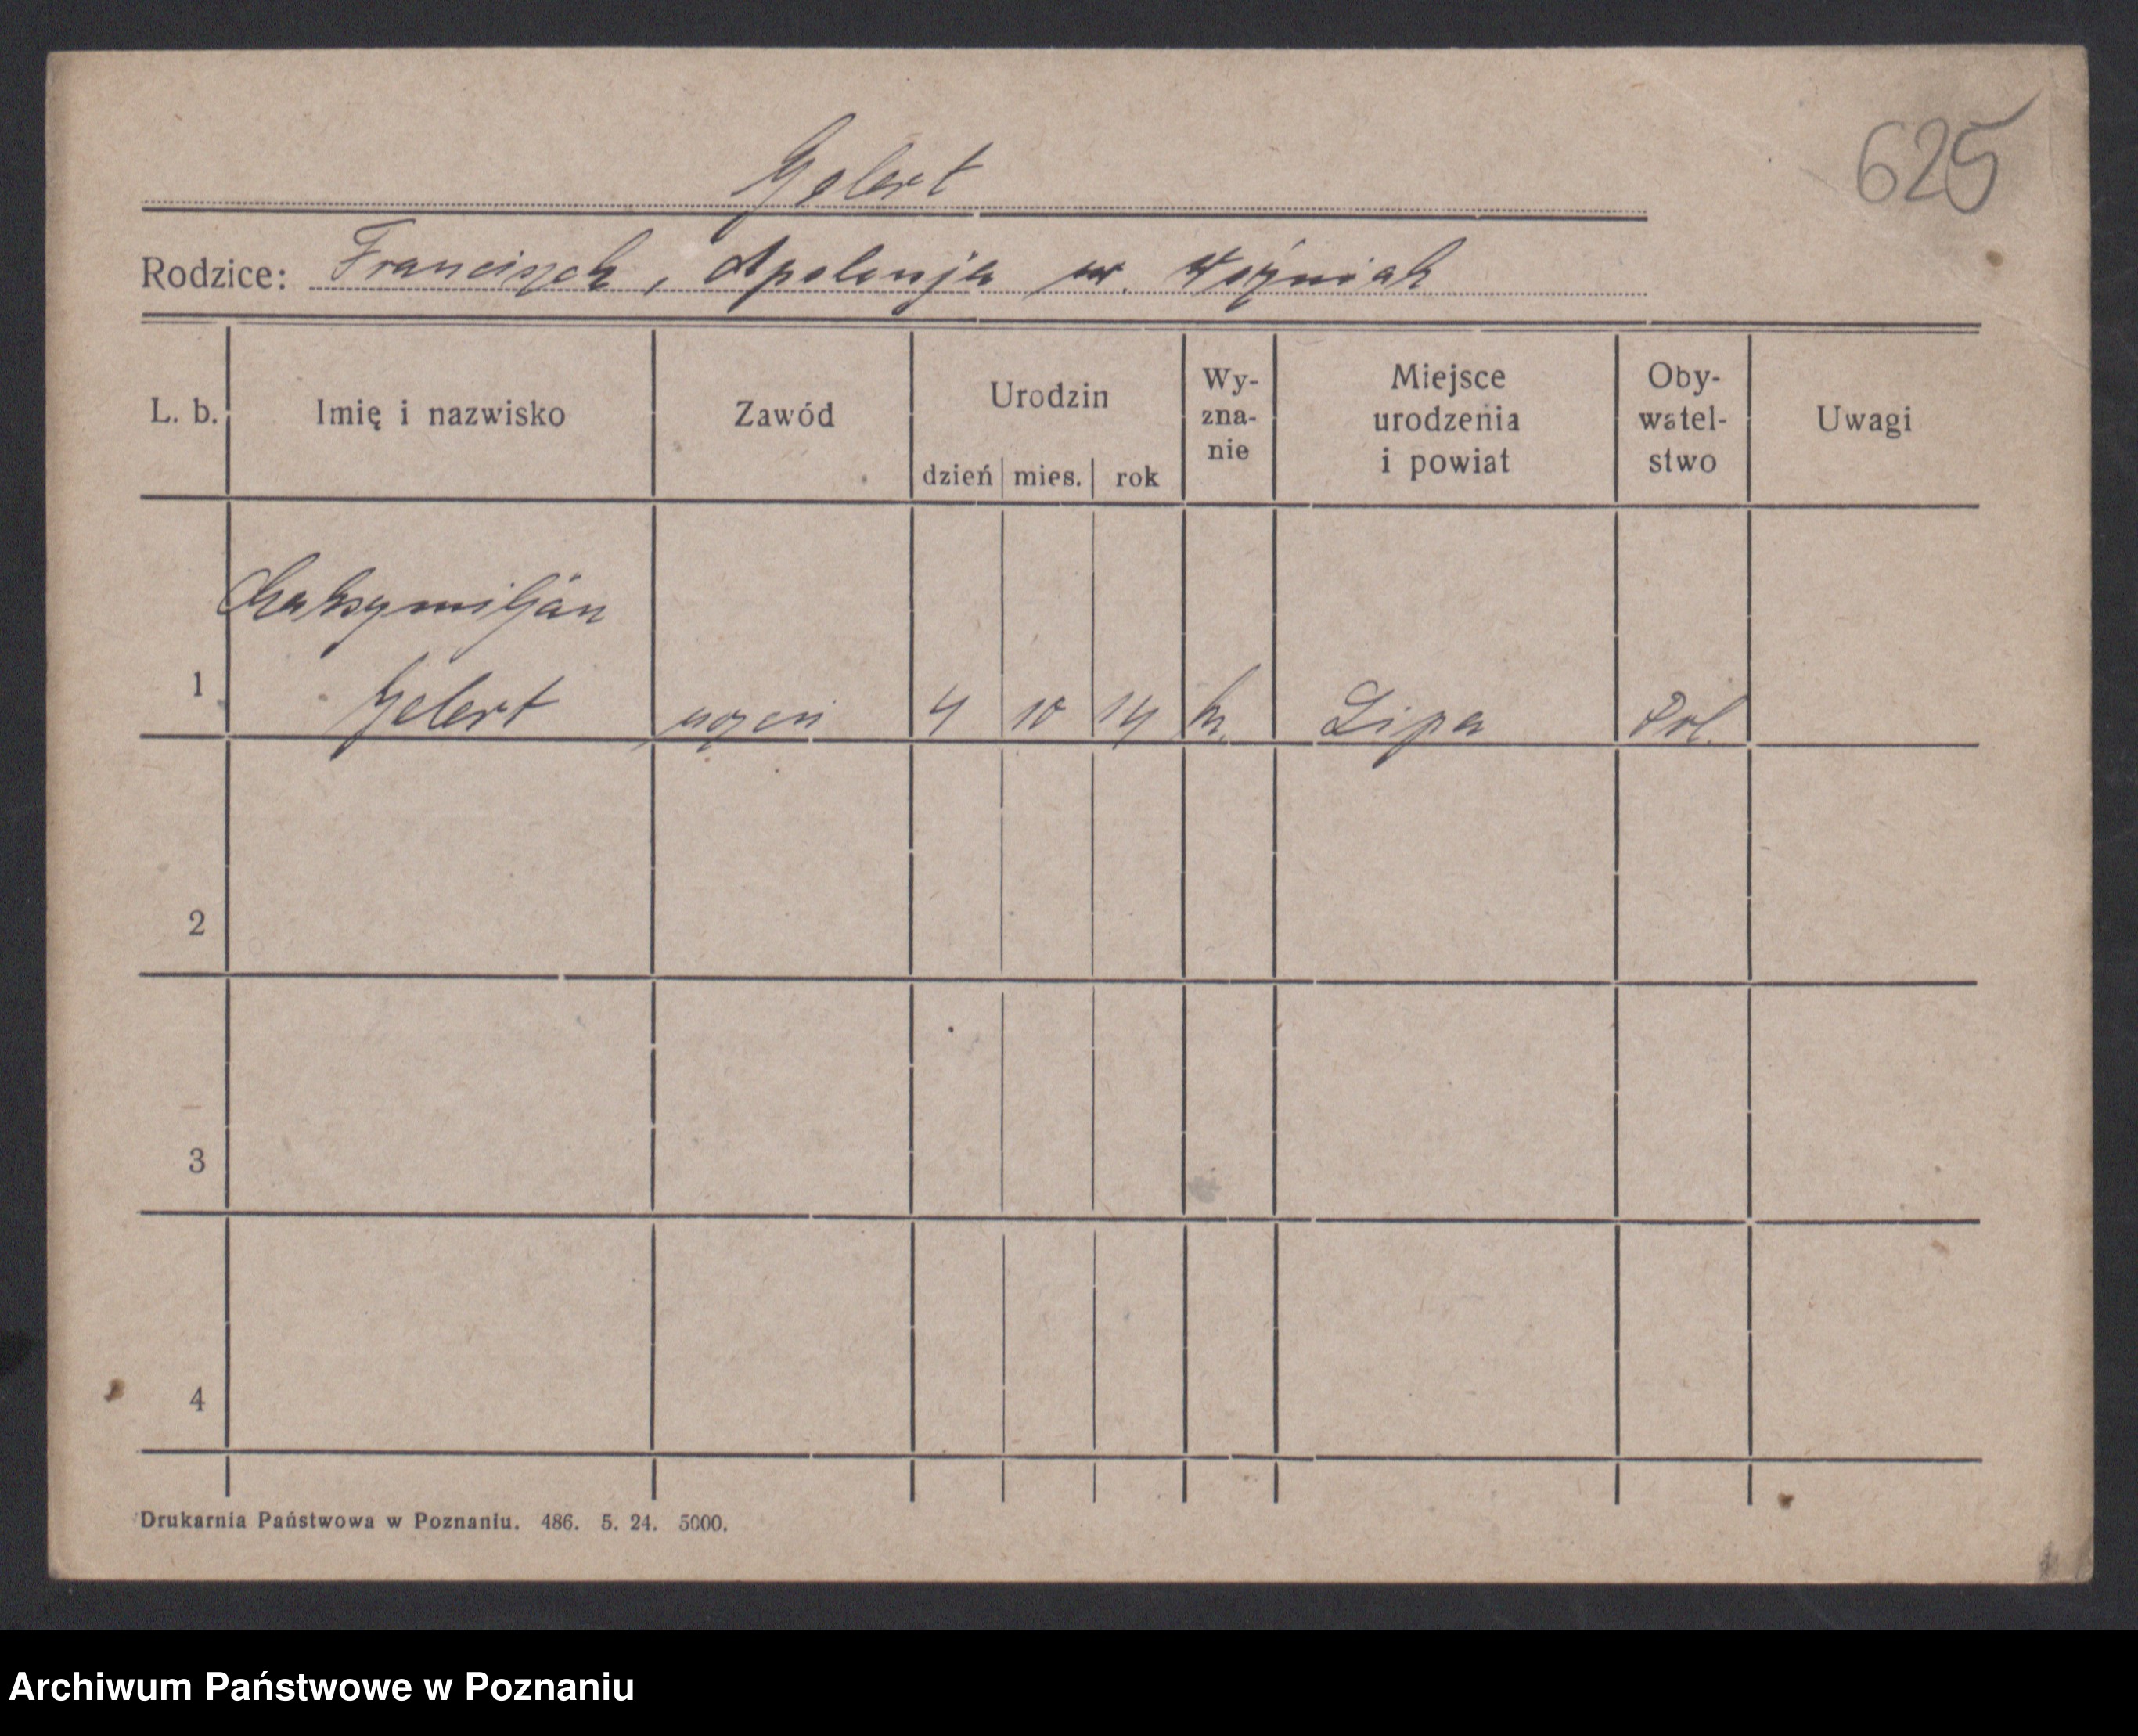 625
Gelert
Rodzice: Franciszek, Apolonja ur. Woźniak
L. b. Imię i nazwisko Zawód Urodzin dzień mies. rok Wy-zna-nie Miejsce urodzenia i powiat Oby-watel-stwo Uwagi
Maksymiljan
1 Gelert uczeń 4 10 14 k. Lipa Pol.
2
3
4
Drukarnia Państwowa w Poznaniu. 486. 5. 24. 5000.
Archiwum Państwowe w Poznaniu